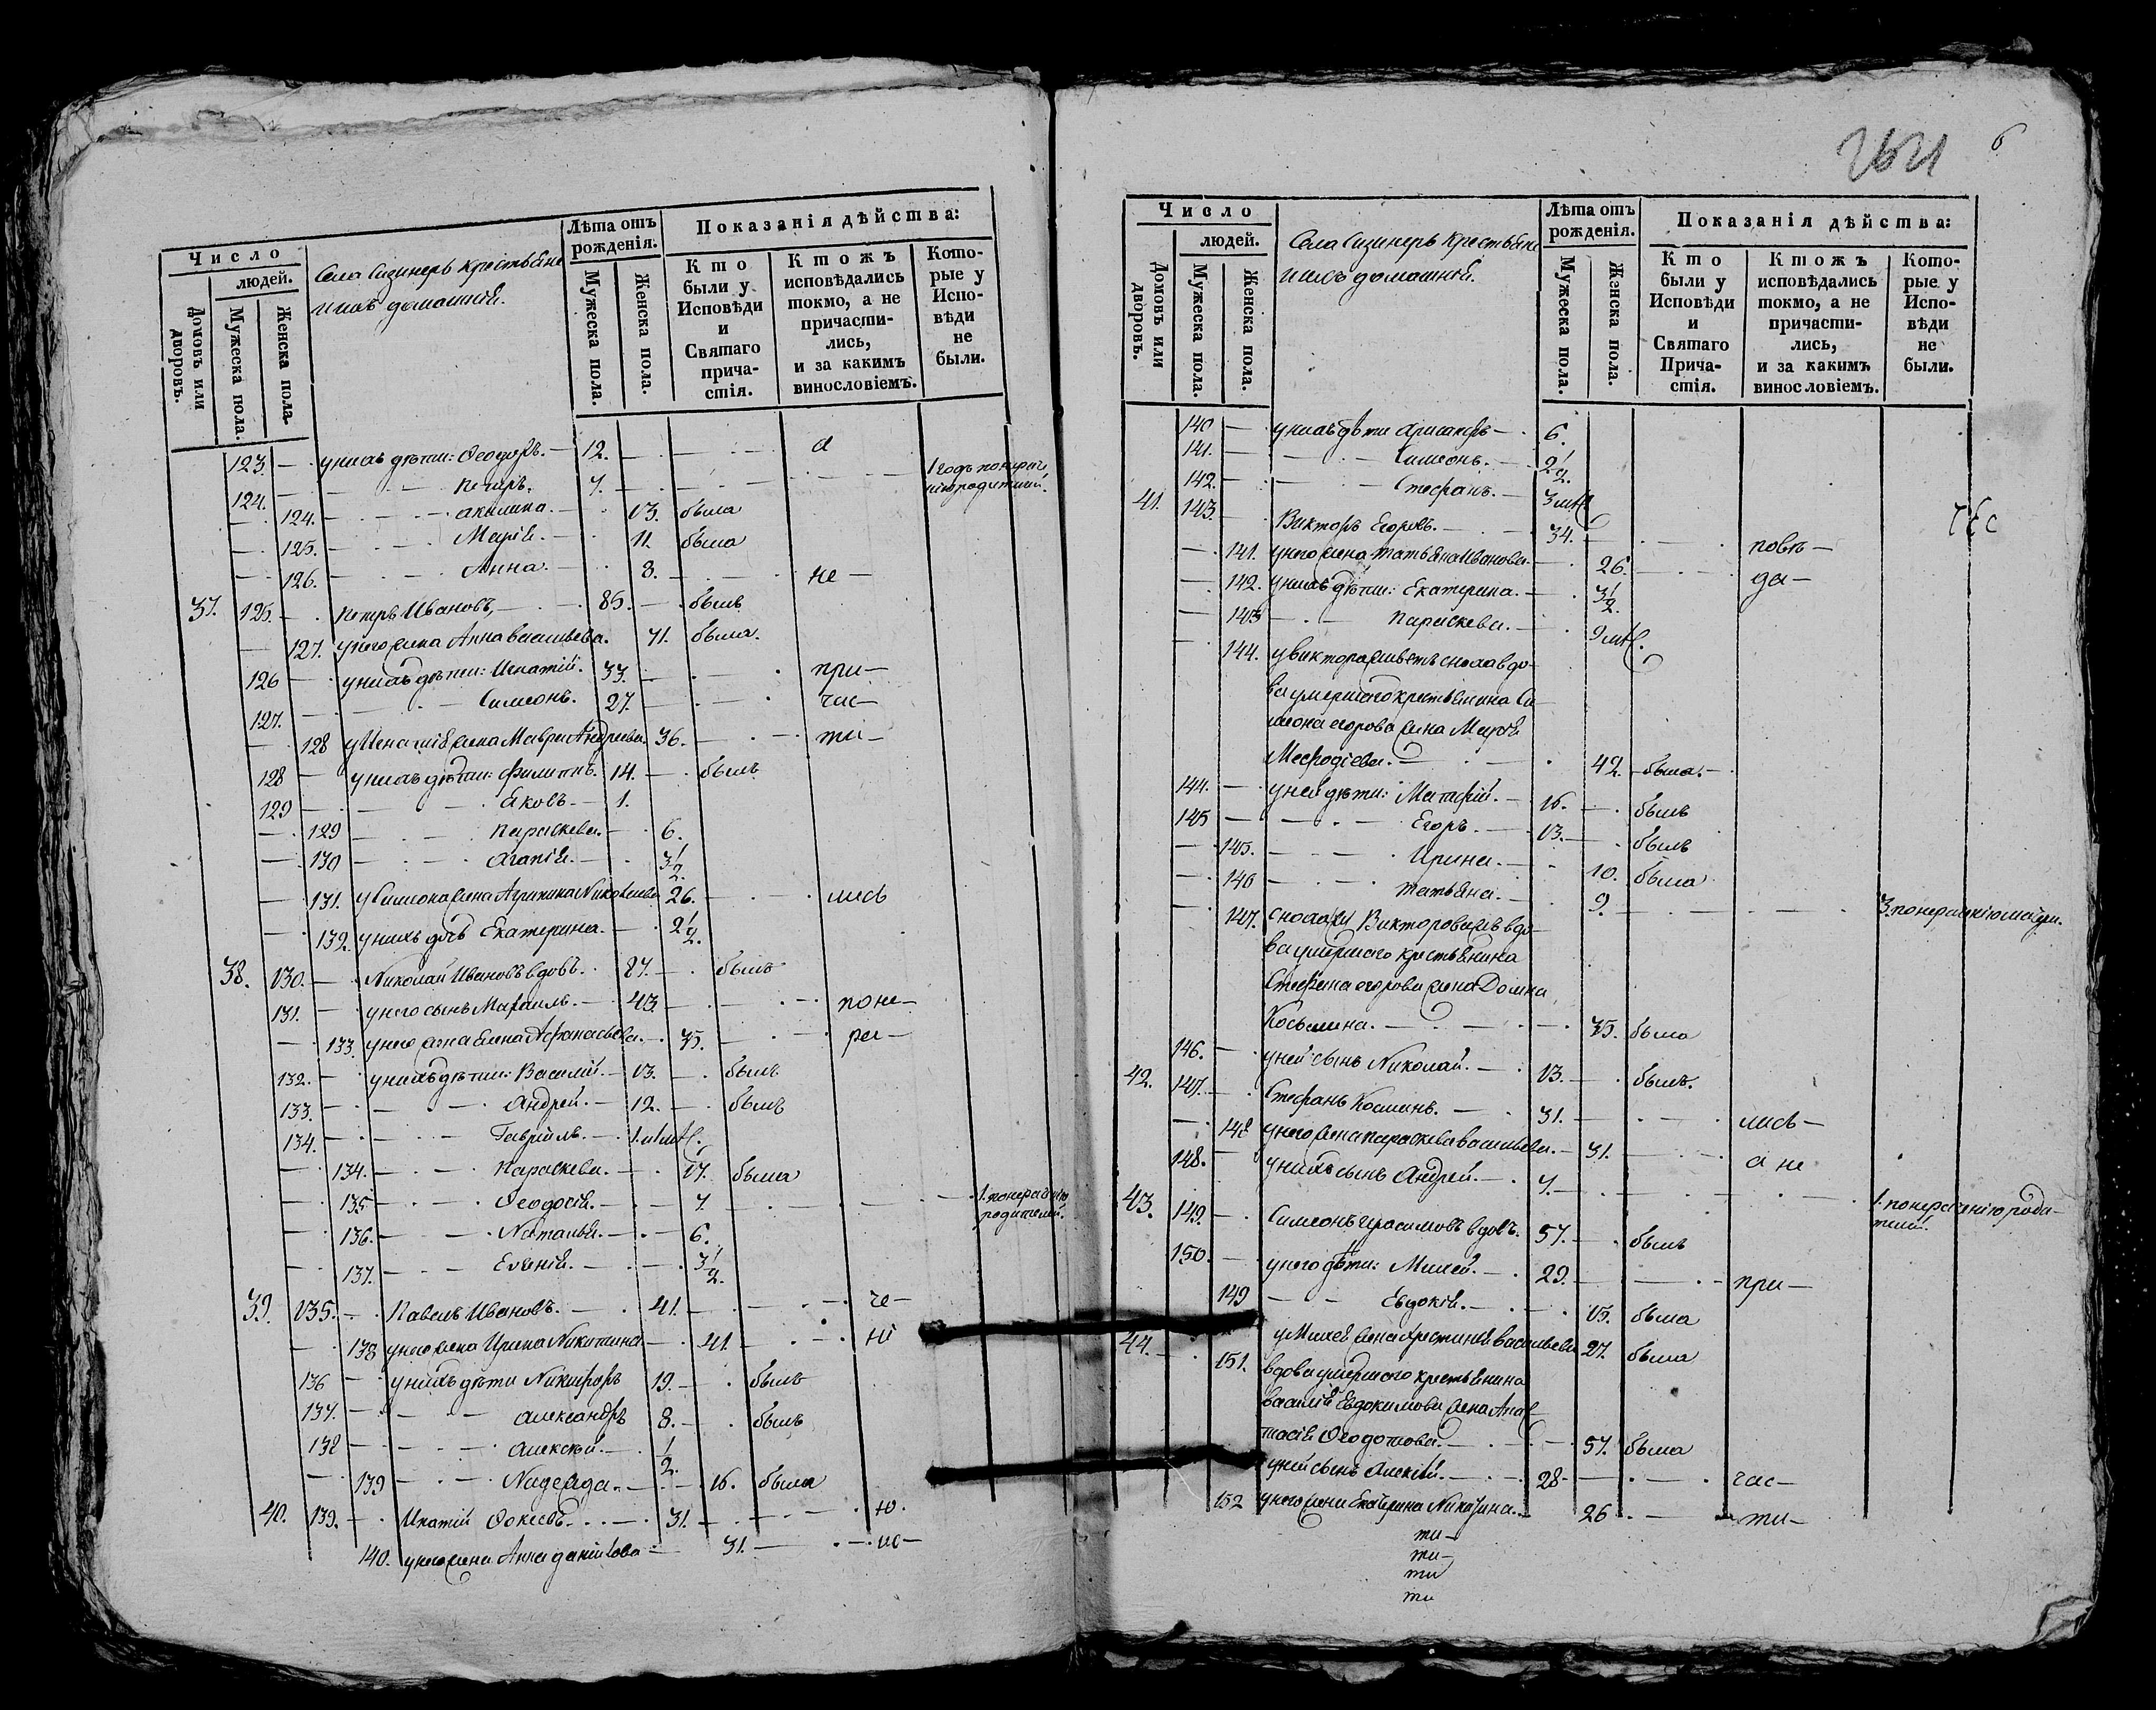 Число
людей.
Домовъ или дворовъ.
Мужеска пола.
Женска пола.
Села Сизнеръ Крестьяне
и ихъ домашнiе.
Лѣта отъ рожденiя.
Мужеска пола.
Женска пола.
Показанiя дѣйства:
Кто были у Исповѣди и Святаго причастiя.
Ктожъ исповѣдались токмо, а не причастились, и за какимъ винословiемъ.
Которые у Исповѣди не были.
123. — у нихъ дѣти: Ѳеодоръ. — 12. — а
124. — Петръ. 7. —
124. — Акилина. — 13. была
125. — Марiя. — 11. была
126. — Анна. — 8. — не —
37. 125. — Петръ Ивановъ, — 85. — былъ
127. у него жена Анна Васильева. 71. была.
126 — у нихъ дѣти: Игнатiй. 33. — при —
127. — Симеонъ. 27. — час —
128 у Игнатiя жена Мавра Андреева 36. — ти —
128 — у нихъ дѣти: Филиппъ. 14. — былъ
129 — Яковъ — 1.
129 — Параскева. — 6.
130 — Агапiя. — 3 1/2.
131. у Симеона жена Агрипина Николаева 26. — лись
132. у нихъ дочь Екатерина. — 2 1/2.
38. 130. — Николай Ивановъ вдовъ. 87. — былъ
131. — у него сынъ Михаилъ. — 43. — поне —
133. у него жена Елена Афанасьева. — 35. — ра —
132. — у нихъ дѣти: Василiй. — 13. — былъ
133. — Андрей. — 12. — былъ
134. — Гаврiилъ. —
134. — Параскева. — 17. была
135 — Ѳеодосiя. — 7. — 1. понераденiю родителей.
136. — Наталья. — 6.
137. — Евгенiя. — 3 1/2.
39. 135. — Павелъ Ивановъ. — 41. —
138 у него жена Ирина Никитина — 41. — нi
136 — у нихъ дѣти Никифоръ 19. — былъ
137. — Александръ 8. — былъ
138 — Алексѣй. — 1/2.
139 — Надежда. — 16. была
40. 139. — Игнатiй 31. — ю.
140. у него жена Анна Данилова — 31. —
6
Число
людей.
Домовъ или дворовъ.
Мужеска пола.
Женска пола.
Села Сизнеръ Крестьяне
и ихъ домашнiе.
Лѣта отъ рожденiя.
Мужеска пола.
Женска пола.
Показанiя дѣйства:
Кто были у Исповѣди и Святаго Причастiя.
Ктожъ исповѣдались токмо, а не причастились, и за какимъ винословiемъ.
Которые у Исповѣди не были.
140 — у нихъ дѣти 6.
141. — Симеонъ. — 2 1/2.
142. — Стефанъ. — 3 мц.
41. 143. — Викторъ Егоровъ. — 34. — повѣ —
141. у него жена Татьяна Иванова. — 26. — да —
142. у нихъ дѣти: Екатерина. — 3 1/2.
143 — Параскева. — 9 мц.
144. у Виктора живетъ сноха вдо-
ва умершаго крестьянина Си-
меона Егорова жена Марѳа
Меѳодiева. — 42. — была. —
144. — у ней дѣти: Матфiй. — 16. — былъ
145 — Егоръ. — 13. — былъ
145. — Ирина. — 10. была
146 — Татьяна. — 9. — 3. понераденiю матери.
147. сноха же Викторова жъ вдо-
ва умершаго крестьянина
Стефана Егорова жена Домна
Косьмина. — 35. была
146. — у ней сынъ Николай. — 13. — былъ.
42. 147. — Стефанъ Косминъ. — 31. — лись —
148 у него жена Параскева Васильева. — 31. — а не
148. — у нихъ сынъ Андрей. — 7. — 1. понераденiю роди-
телей.
43. 149. — Симеонъ Герасимовъ вдовъ. 57. — былъ
150. — у него дѣти: Михей. — 29. — при —
149 — Евдокiя. — 13. была
у Михея жена Христинiя Васильева 27. была
44. — 151. вдова умершаго крестьянина
Василiя Евдокимова жена Анас-
тасiя Ѳеодотова. — 57. была
у ней сынъ Алексѣй. — 28 — час —
152 у него жена Екатерина 26 — ти —
ти —
ти —
ти
ти